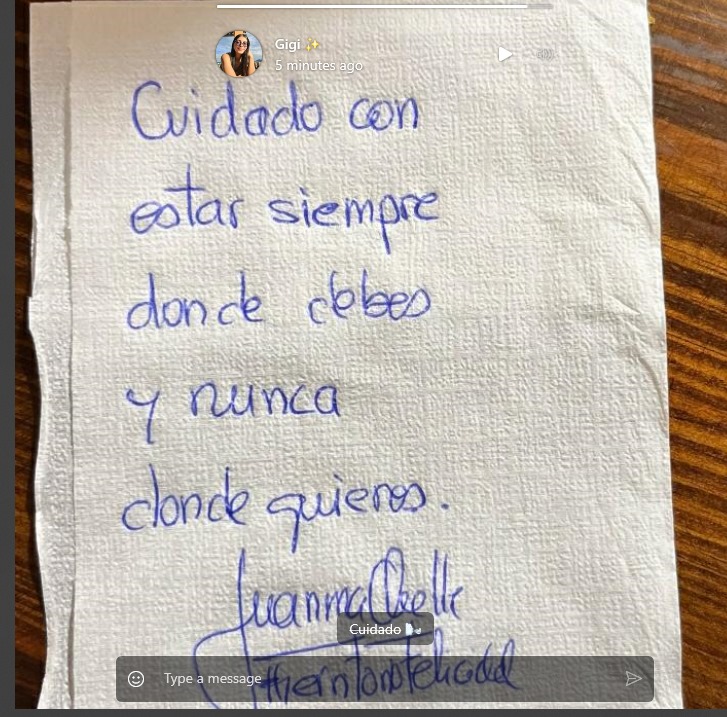 Gigi ✨
5 minutes ago
Cuidado con
estar siempre
donde debes
y nunca
donde quieres.
Juanma
Cuidado 🌬️
Type a message